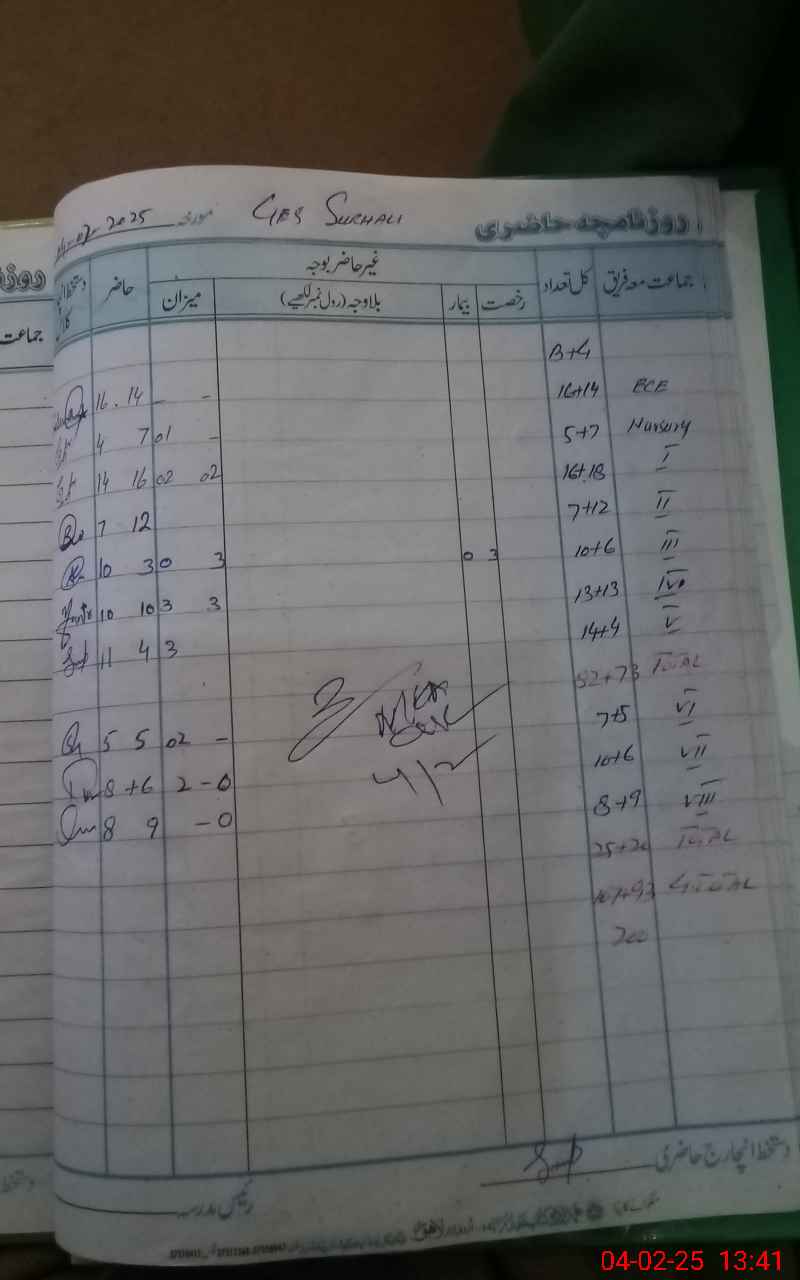 روزنامچہ حاضری GES SUCHALI مورخہ 04-02-2025
جماعت معہ فریق کل تعداد غیر حاضر بوجہ حاضر
رخصت بیمار بلاوجہ (رول نمبر لکھیے) میزان
B+G
ECE 16+14 - - 16 . 14
Nursery 5+7 - 01 4 7
I 16+18 02 02 14 16
II 7+12 7 12
III 10+6 0 3 0 3 10 3
IV 13+13 3 3 10 10
V 14+4 3 11 4
TOTAL 82+73
VI 7+5 02 - 5 5
VII 10+6 2 - 0 8+6
VIII 8+9 - 0 8 9
TOTAL 25+20
G TOTAL 107+93
200
4/2
دستخط انچارج حاضری
رئیس مدرسہ
روز
جماعت
04-02-25 13:41